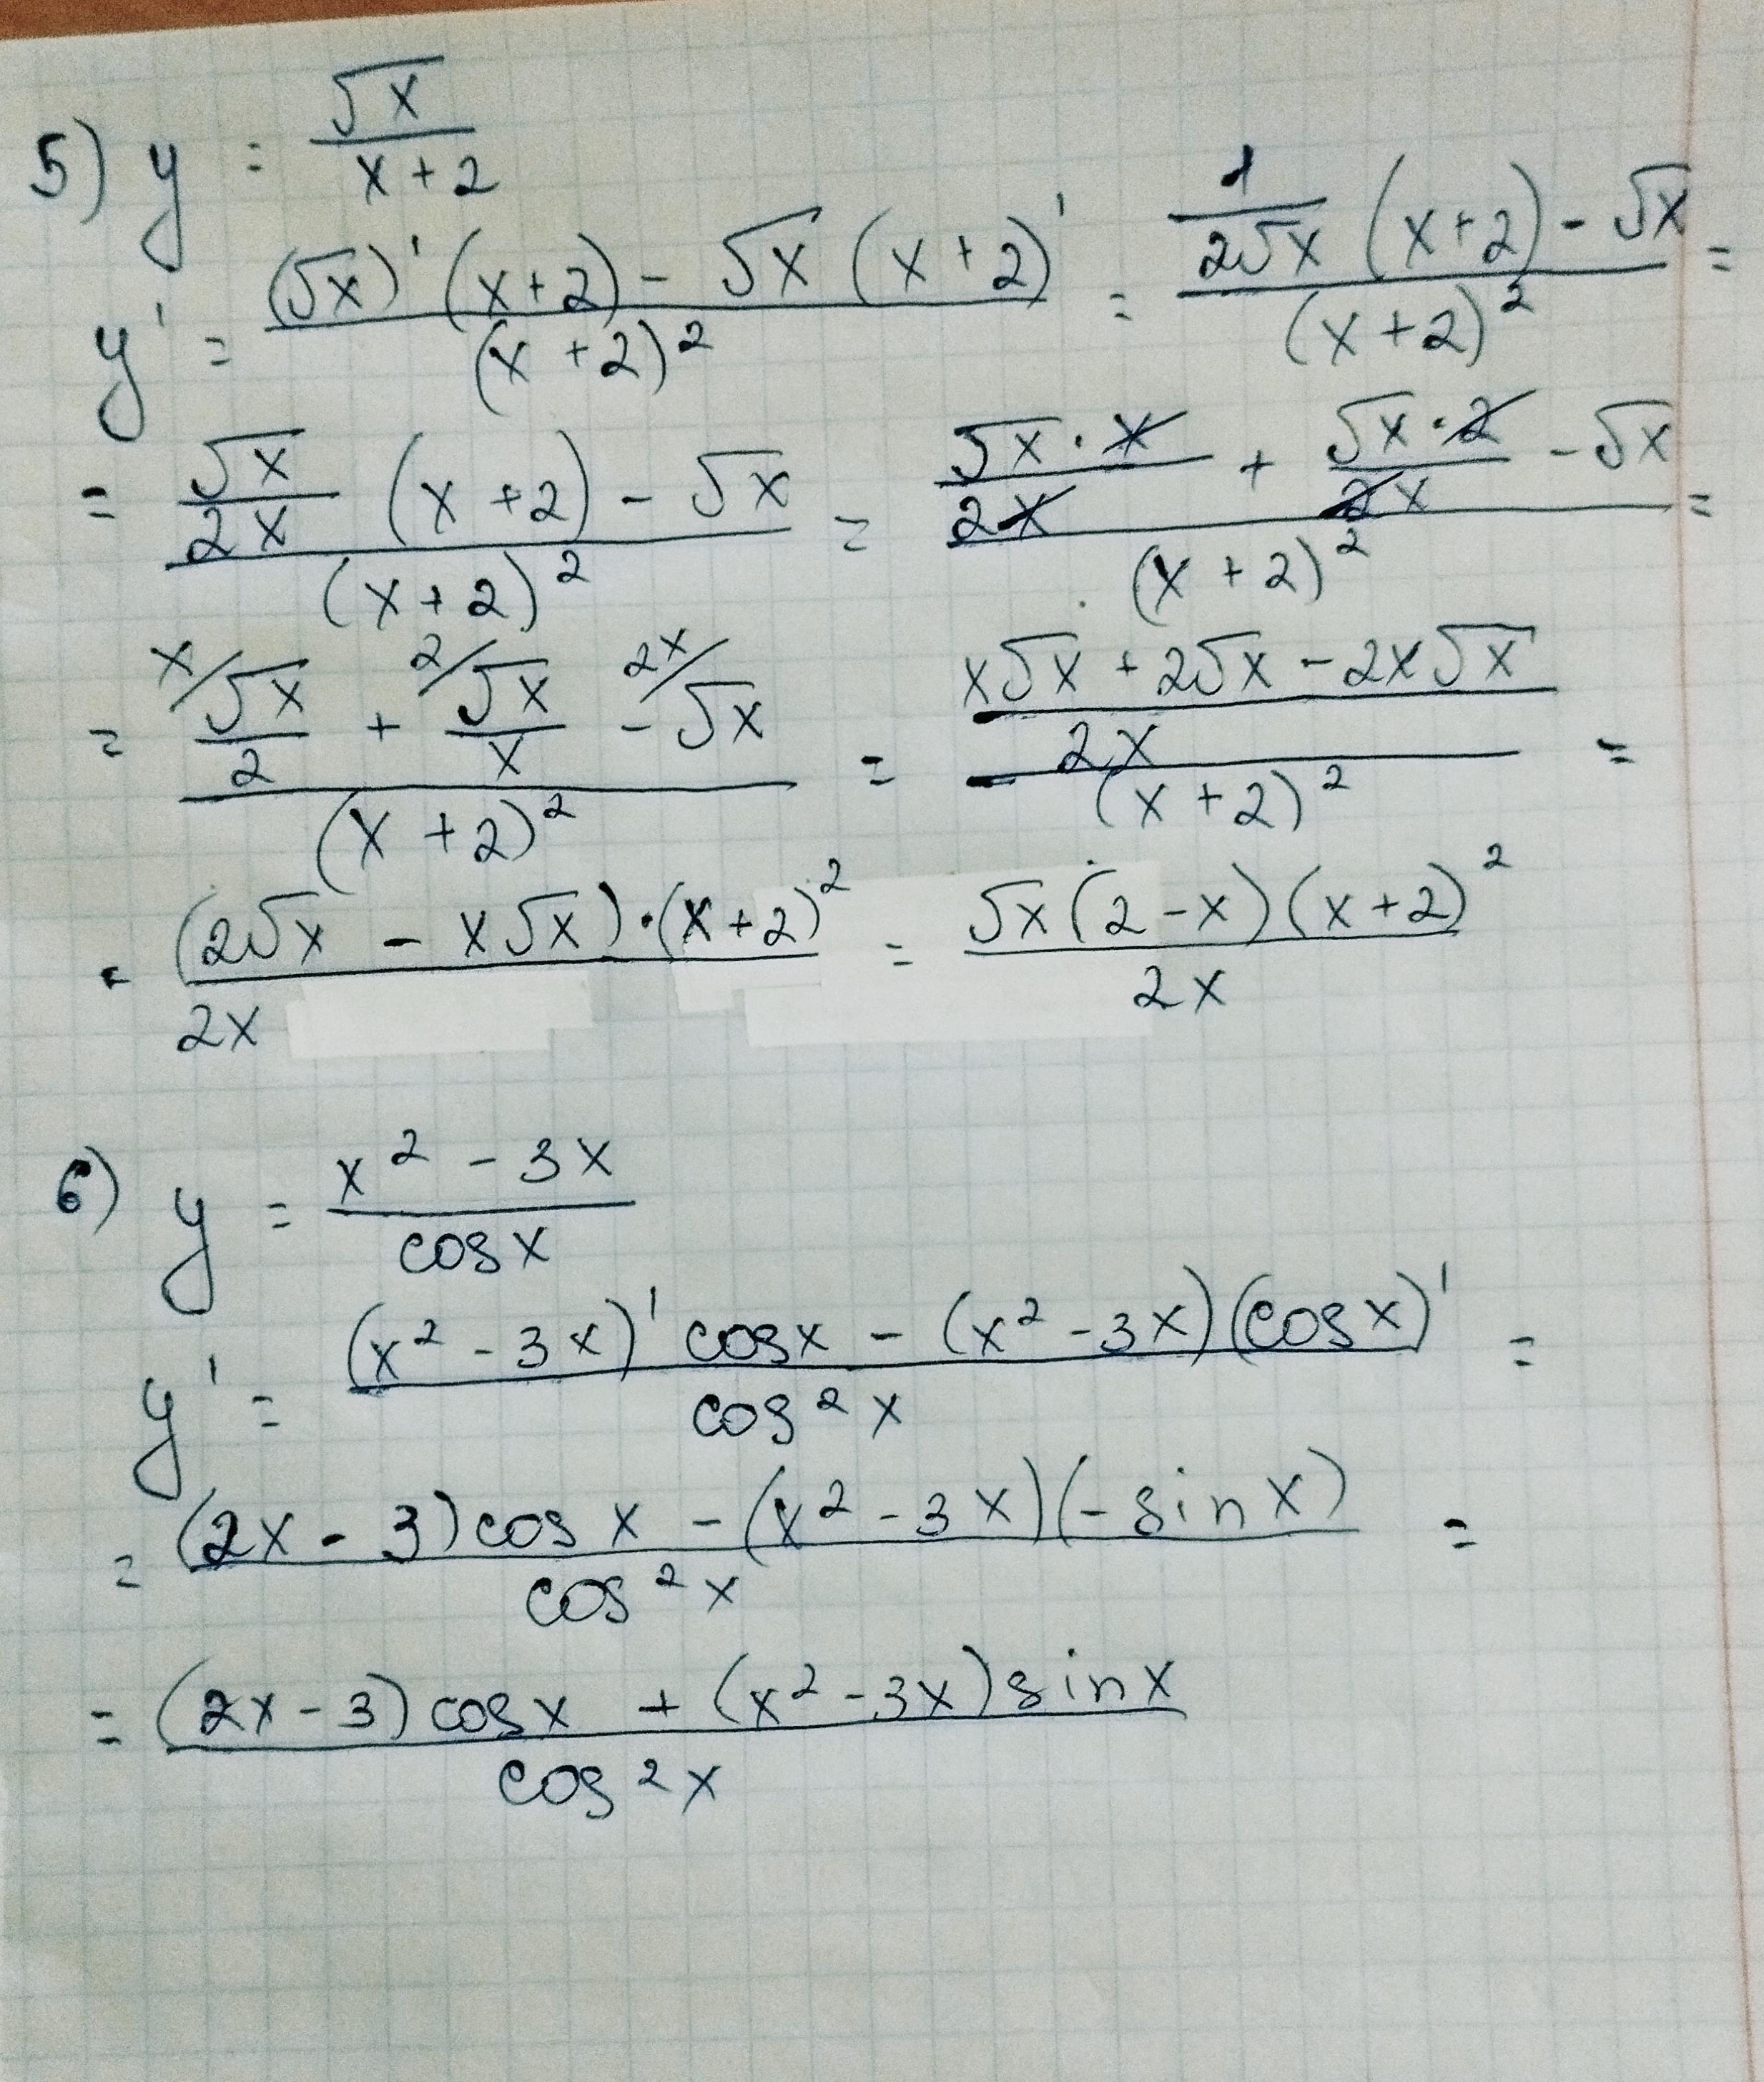 5) y = √x / (x + 2)
y' = ((√x)' (x + 2) - √x (x + 2)') / (x + 2)² = (1/(2√x) (x + 2) - √x) / (x + 2)² =
= (√x/(2x) (x + 2) - √x) / (x + 2)² = ((√x · x)/(2x) + (√x · 2)/(2x) - √x) / (x + 2)² =
= (ˣ/ √x/2 + ²/ √x/x - ²ˣ/ √x) / (x + 2)² = ((x√x + 2√x - 2x√x) / 2x) / (x + 2)² =
= ((2√x - x√x) · (x + 2)²) / 2x = (√x (2 - x)(x + 2)²) / 2x
6) y = (x² - 3x) / cos x
y' = ((x² - 3x)' cos x - (x² - 3x)(cos x)') / cos² x =
= ((2x - 3) cos x - (x² - 3x)(- sin x)) / cos² x =
= ((2x - 3) cos x + (x² - 3x) sin x) / cos² x